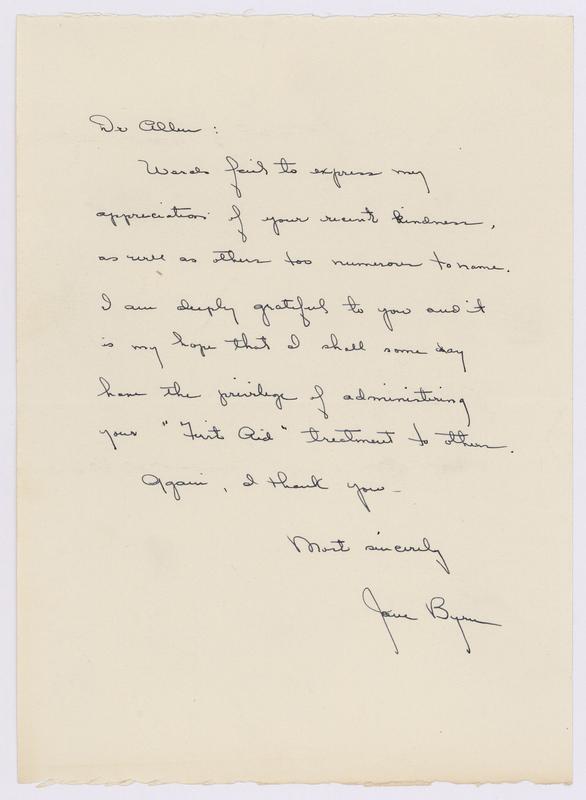 Dr Allen :
Words fail to express my
appreciation of your recent kindness,
as well as others too numerous to name.
I am deeply grateful to you and it
is my hope that I shall some day
have the privilege of administering
your "First Aid" treatment to others.
Again, I thank you -
Most sincerely
Jane Byrn